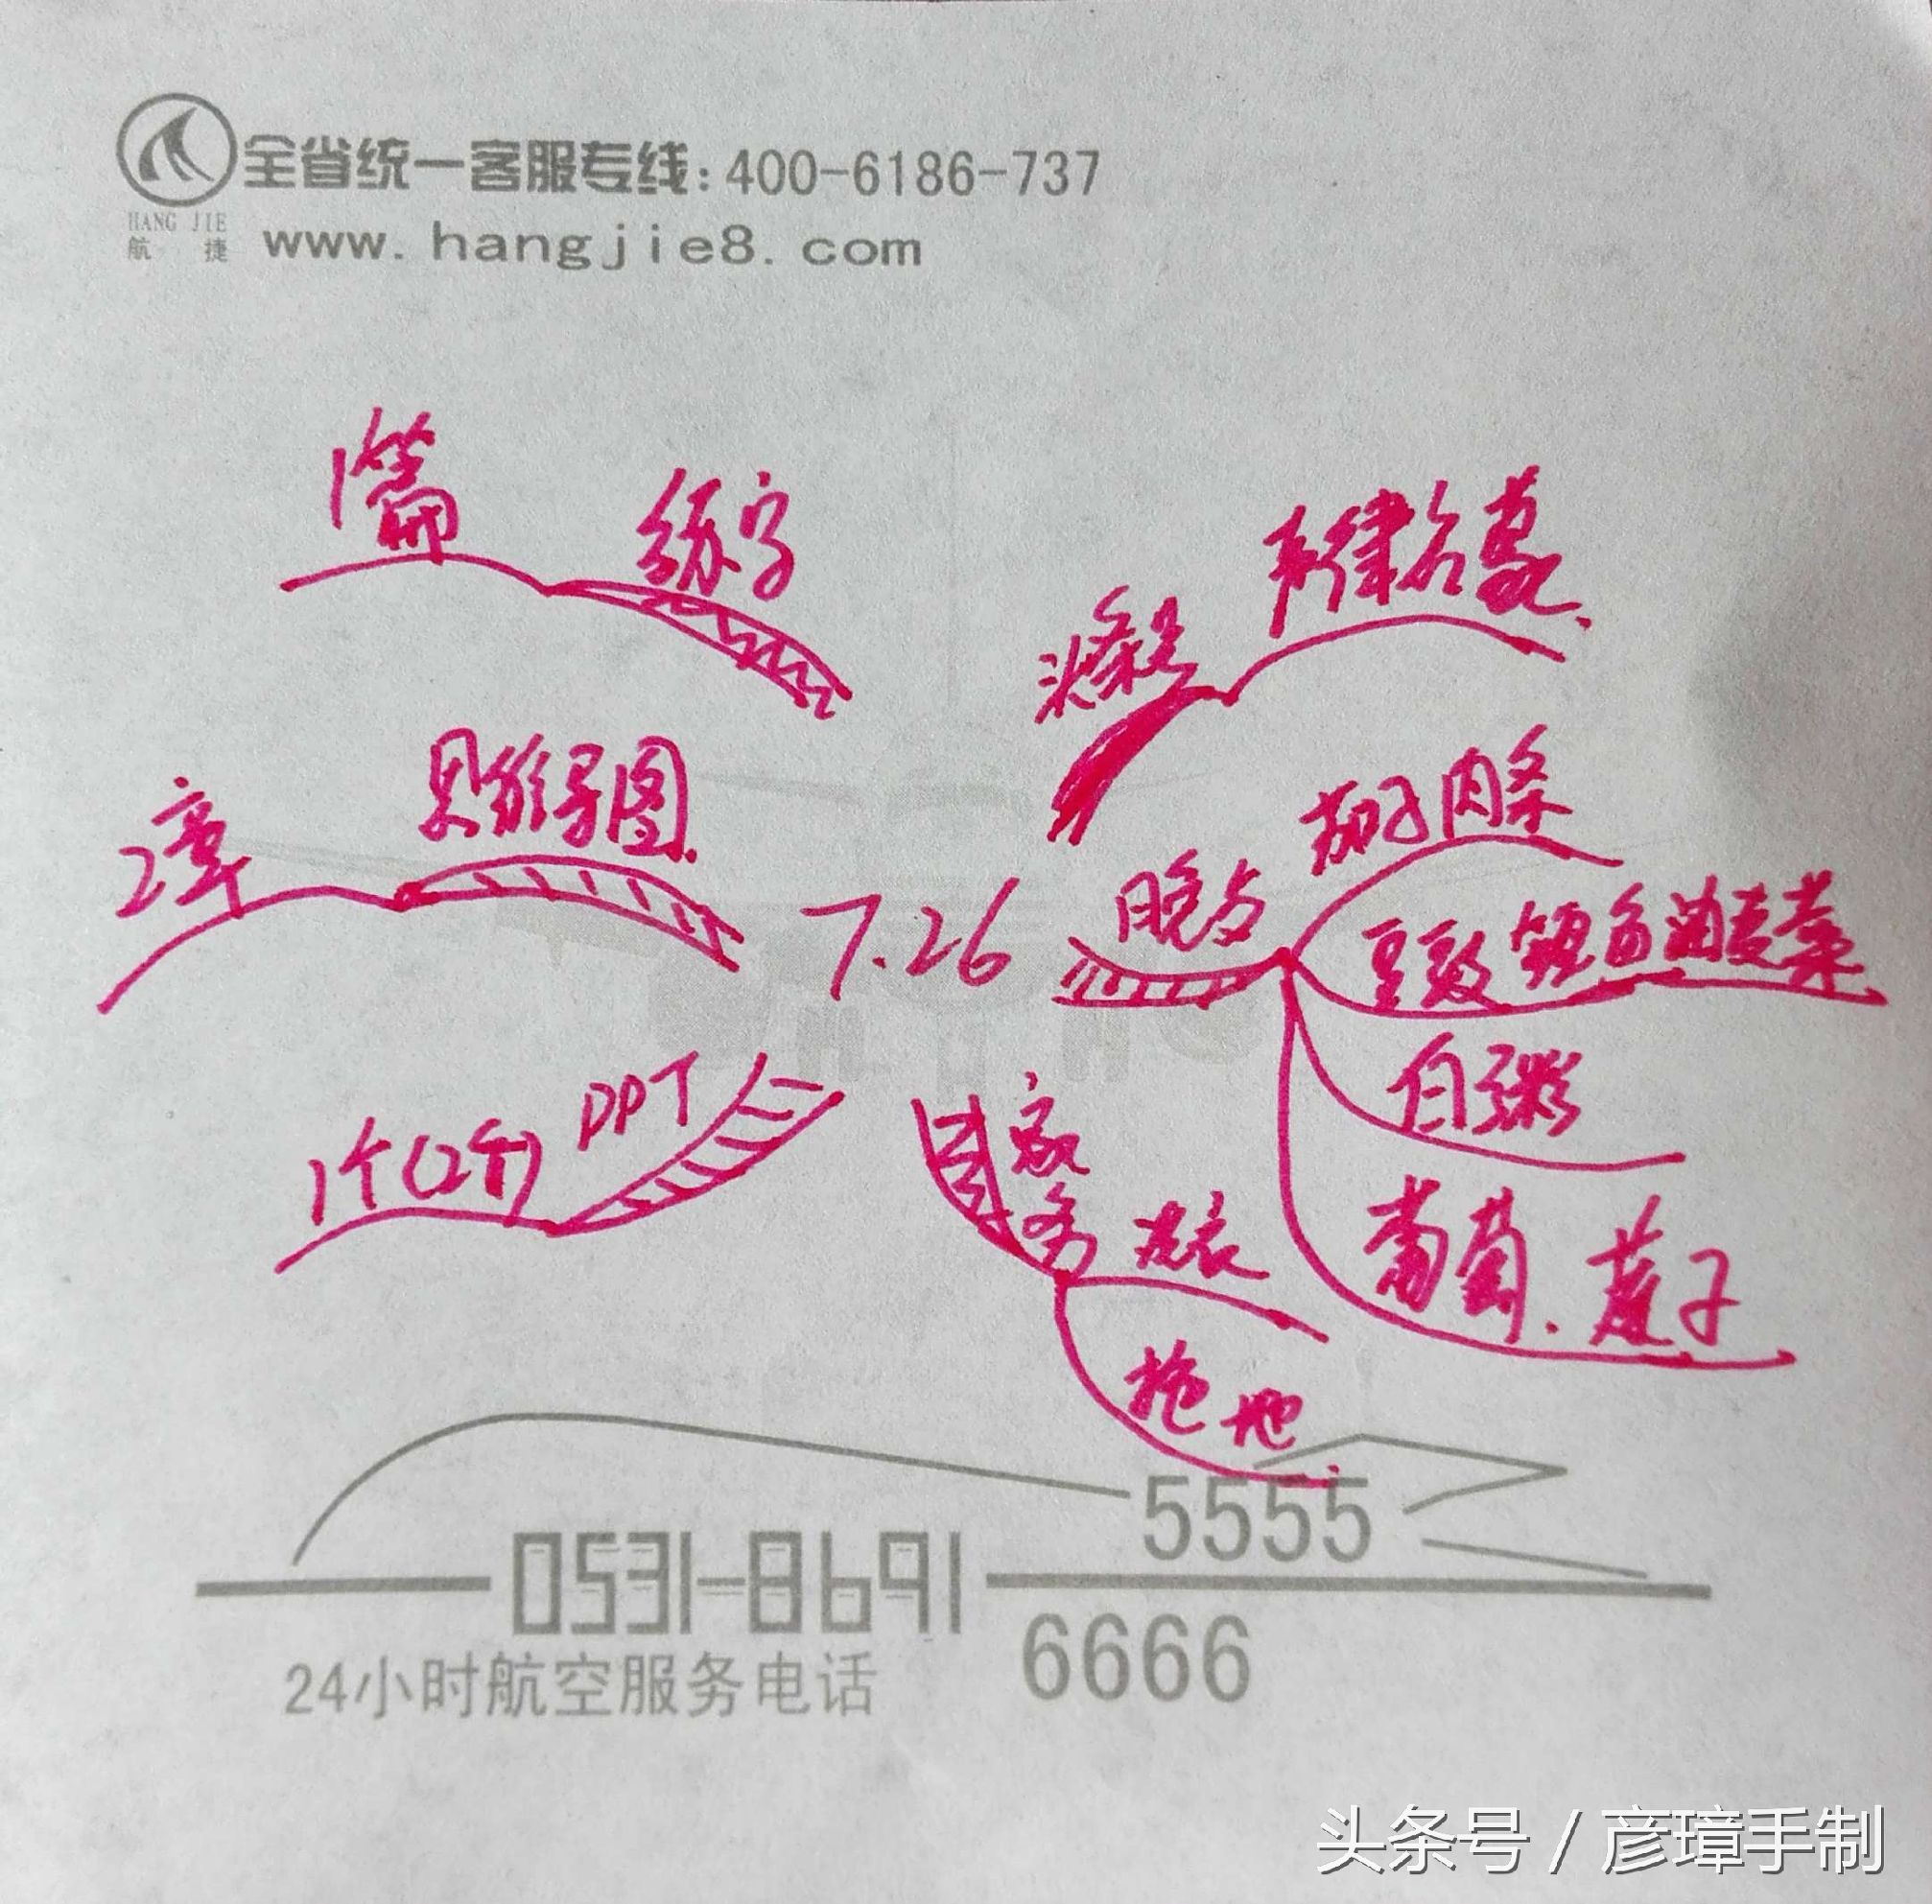 全省统一客服专线:400-6186-737
HANG JIE
航 捷
www.hangjie8.com
1篇 练字
声律启蒙
2章 思维导图
7.26
晚与
茄子肉条
豆豉鲮鱼油麦菜
白粥
葡萄、莲子
1个(2个) PPT
家务
洗衣
拖地
0531-8691
5555
6666
24小时航空服务电话
头条号 / 彦璋手制